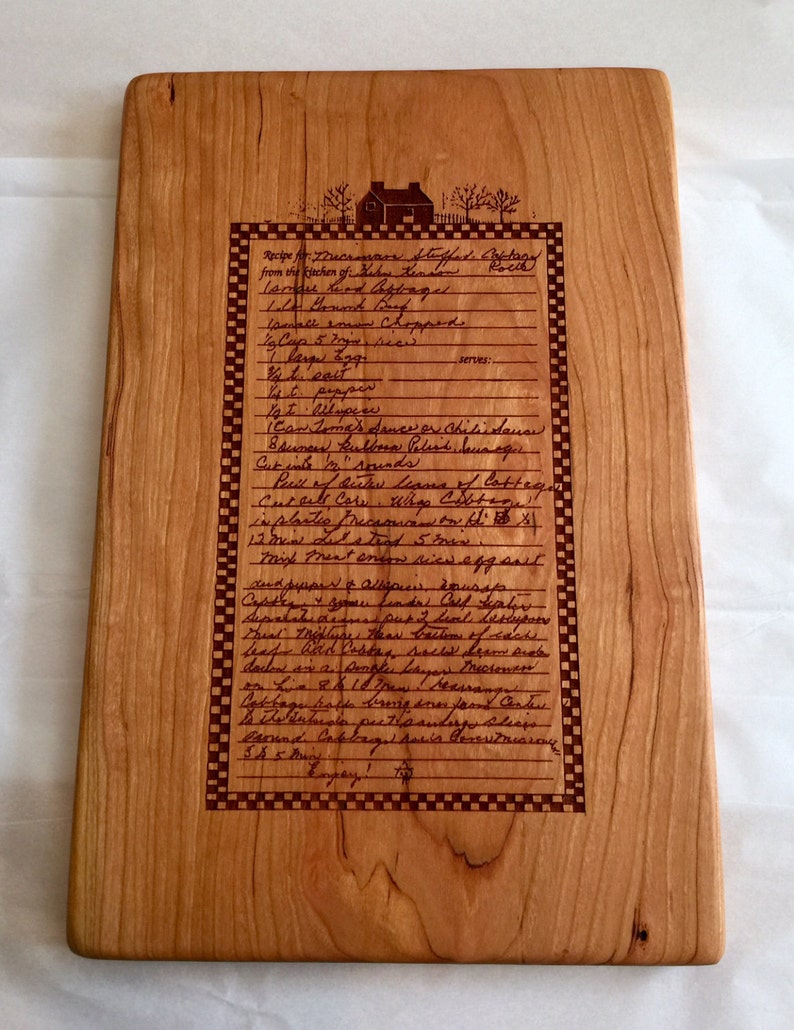 Recipe for: Microwave Stuffed Cabbage
Rolls
from the kitchen of:
1 small head Cabbage
1 lb Ground Beef
1 small onion Chopped
1/2 Cup 5 Min. rice
1 large Egg serves:
3/4 t. salt
1/4 t. pepper
1/2 t. Allspice
1 Can Toma's Sauce or Chili Sauce
8 ounces Polish Sausage
Cut into rounds
Peel of outer leaves of Cabbage
Cut out Core. Wrap Cabbage
in plastic Microwave on
12 Min Let stand 5 Min.
Mix Meat onion rice egg salt
and pepper & Allspice. unwrap
Cabbage & rinse under Cold Water
Separate leaves put 2 level
meat mixture near bottom of each
leaf. Cabbage rolls seam side
down in a single layer Microwave
on Hi 8 to 10 Min. rearrange
Cabbage Rolls bring ones from Center
to the outside put sausage slices
around Cabbage Rolls Cover Microwave
3 to 5 Min
Enjoy!